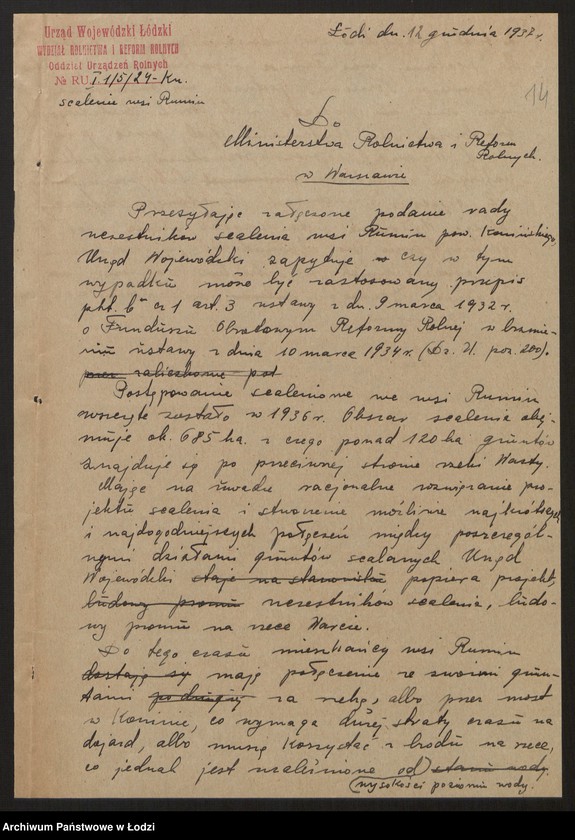 Urząd Wojewódzki Łódzki
WYDZIAŁ ROLNICTWA I REFORM ROLNYCH
Oddział Urządzeń Rolnych
№ RU. I 1/5/24-Kn.
scalenie wsi Rumin
Łódź dn. 12 grudnia 1937 r.
14
Do
Ministerstwa Rolnictwa i Reform
Rolnych.
w Warszawie
Przesyłając załączone podanie rady
uczestników scalenia wsi Rumin pow. Konińskiego,
Urząd Wojewódzki zapytuje czy w tym
wypadku może być zastosowany przepis
pkt. b" cz 1 art. 3 ustawy z dn. 9 marca 1932 r.
o Funduszu Obrotowym Reformy Rolnej w brzmie-
niu ustawy z dnia 10 marca 1934 r. (Dz. U. poz. 200).
Postępowanie scaleniowe we wsi Rumin
wszczęte zostało w 1936 r. Obszar scalenia obej-
muje ok. 685 ha. z czego ponad 120 ha gruntów
znajduje się po przeciwnej stronie rzeki Warty.
Mając na uwadze racjonalne rozwiązanie pro-
jektu scalenia i stworzenie możliwie najkrótszych
i najdogodniejszych połączeń między poszczegól-
nymi działami gruntów scalanych Urząd
Wojewódzki staje na stanowisku popiera projekt,
budowy promu uczestników scalenia, budo-
wy promu na rzece Warcie.
Do tego czasu mieszkańcy wsi Rumin
dostają się mają połączenie ze swoimi grun-
tami za rzeką, albo przez most
w Koninie, co wymaga dużej straty czasu na
dojazd, albo muszą korzystać z brodu na rzece,
co jednak jest uzależnione od stanu wody.
wysokości poziomu wody.
Archiwum Państwowe w Łodzi